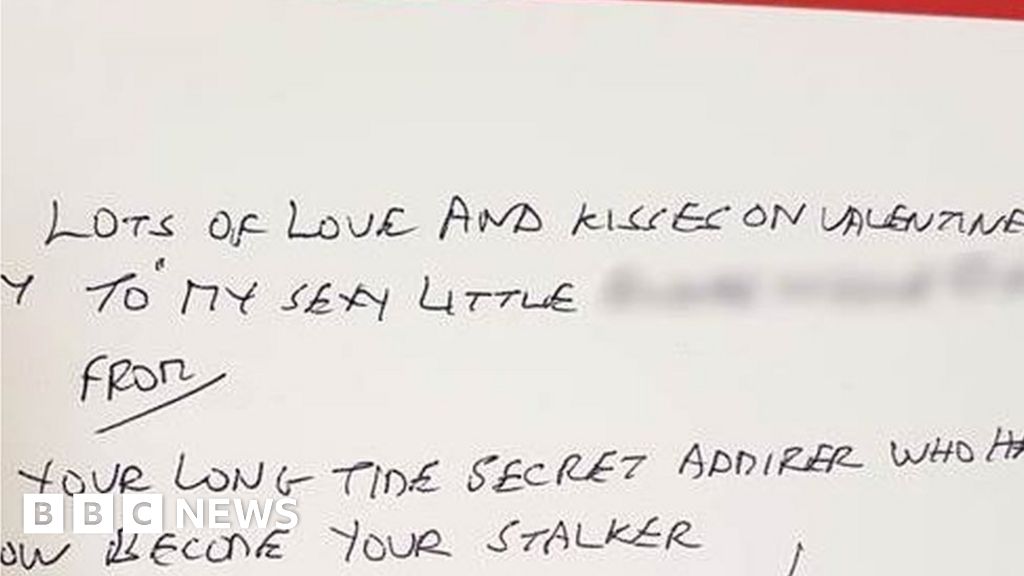 LOTS OF LOVE AND KISSES ON VALENTINE
Y TO "MY SEXY LITTLE
FROM
YOUR LONG TIME SECRET ADMIRER WHO HA
OW BECOME YOUR STALKER
BBC NEWS